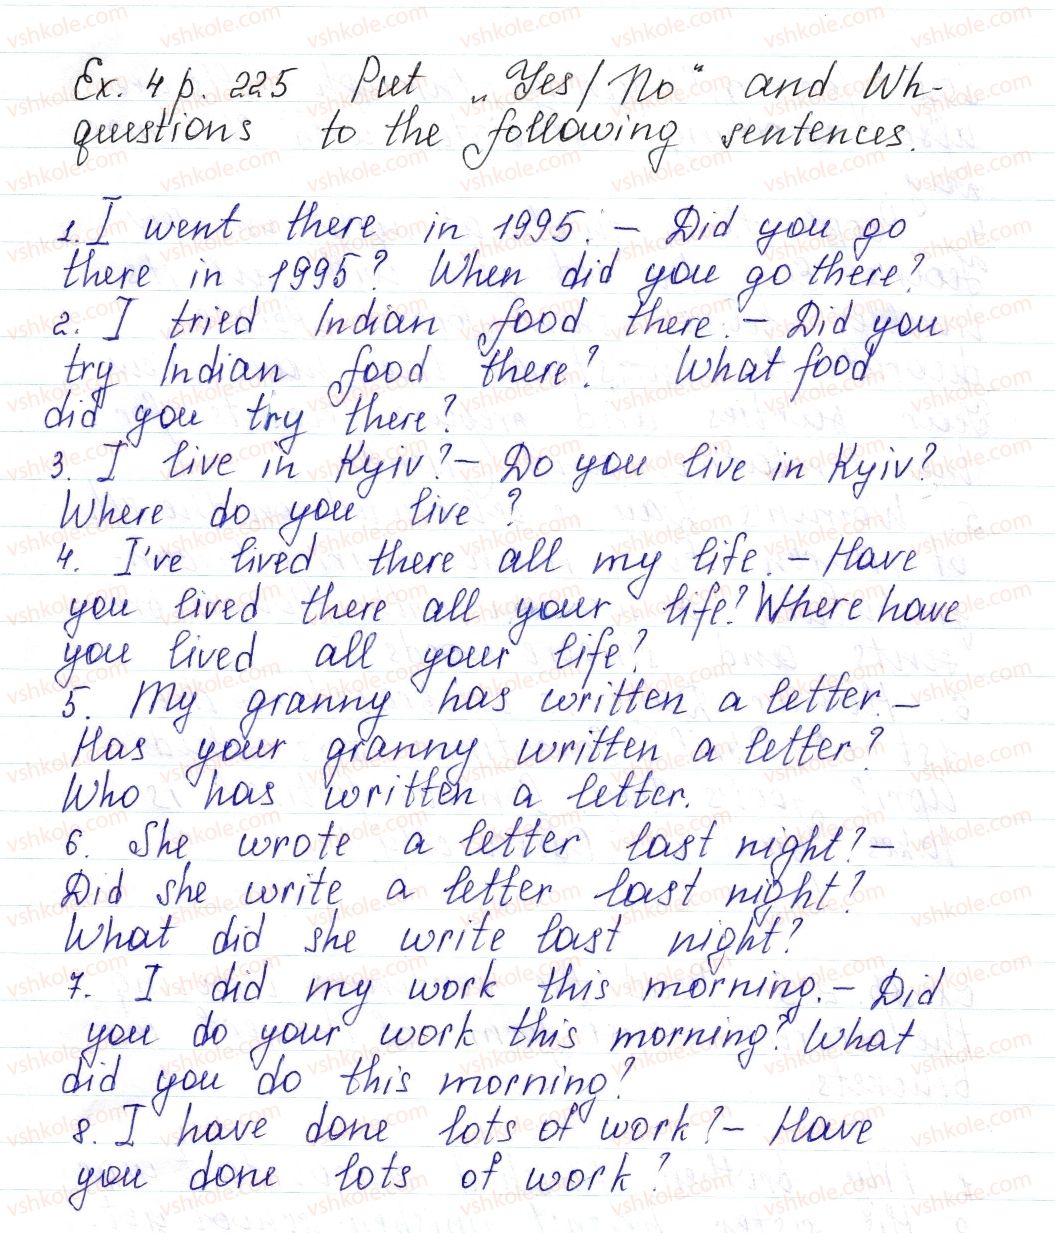 Ex. 4 p. 225 Put „Yes/No" and Wh-
questions to the following sentences.
1. I went there in 1995. – Did you go
there in 1995? When did you go there?
2. I tried Indian food there. – Did you
try Indian food there? What food
did you try there?
3. I live in Kyiv? – Do you live in Kyiv?
Where do you live?
4. I've lived there all my life. – Have
you lived there all your life? Where have
you lived all your life?
5. My granny has written a letter. –
Has your granny written a letter?
Who has written a letter.
6. She wrote a letter last night? –
Did she write a letter last night?
What did she write last night?
7. I did my work this morning. – Did
you do your work this morning? What
did you do this morning?
8. I have done lots of work? – Have
you done lots of work?
vshkole.com